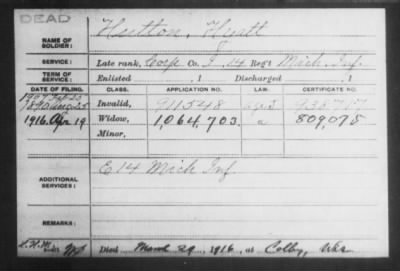 DEAD
NAME OF SOLDIER: Hutton, Hiatt
SERVICE: Late rank, Corp Co. I, 14 Reg't Mich. Inf.
TERM OF SERVICE: Enlisted , 1 Discharged , 1
DATE OF FILING. CLASS. APPLICATION NO. LAW. CERTIFICATE NO.
Invalid, 911548 938717
1916 Apr 19 Widow, 1,064,703 a 809,075
Minor,
E 14 Mich Inf
ADDITIONAL SERVICES:
REMARKS:
Died March 29, 1916, at Colby, Wis